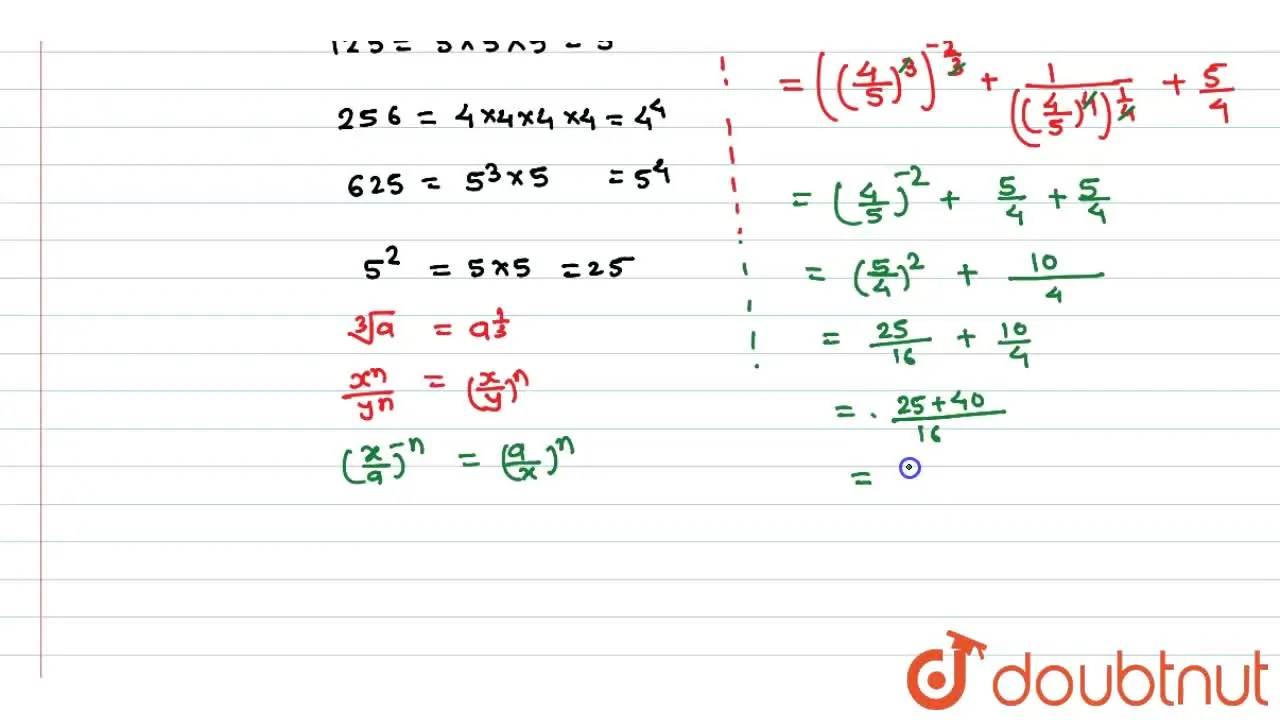 125 = 5×5×5 = 5
256 = 4×4×4×4 = 4⁴
625 = 5³×5 = 5⁴
5² = 5×5 = 25
∛a = a^(1/3)
xⁿ/yⁿ = (x/y)ⁿ
(x/a)⁻ⁿ = (a/x)ⁿ
= ((4/5)³)^(-2/3) + 1/((4/5)⁴)^(1/4) + 5/4
= (4/5)⁻² + 5/4 + 5/4
= (5/4)² + 10/4
= 25/16 + 10/4
= 25+40/16
=
doubtnut